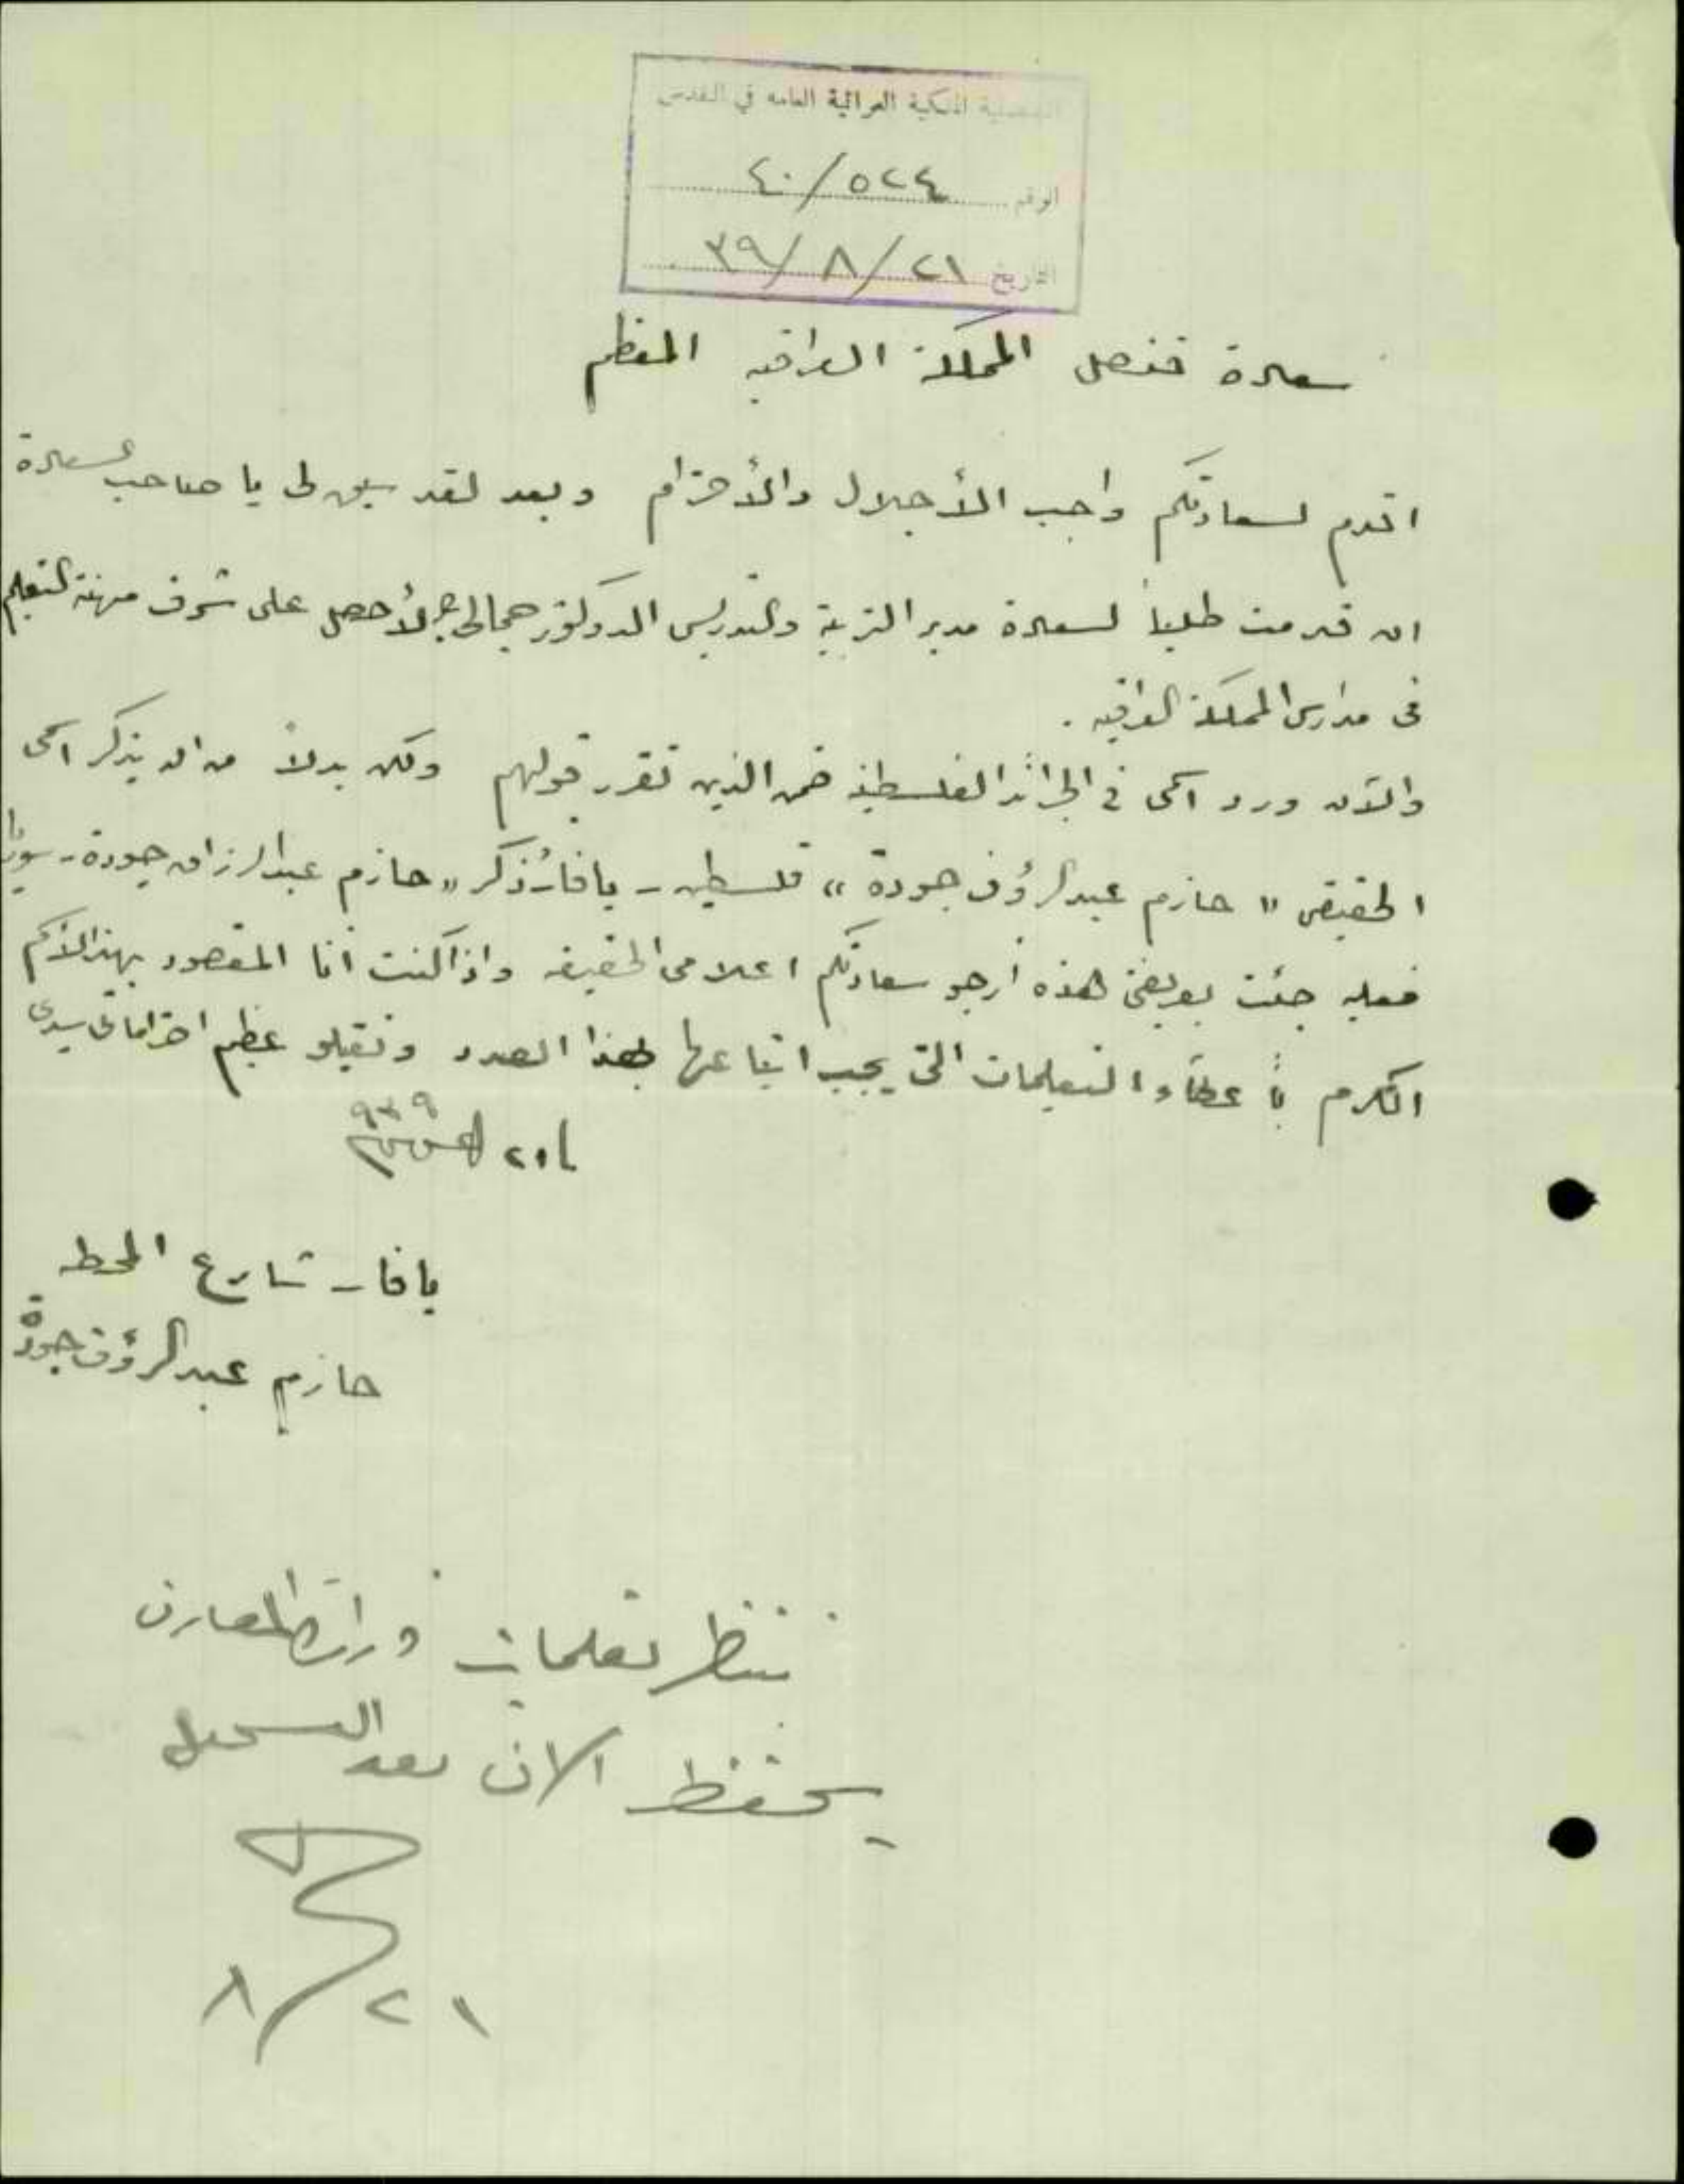 القنصلية الملكية العراقية العامه في القدس
الرقم ٤٠/٥٢٤
التاريخ ٣٩/٨/٢١
سعادة قنصل المملكة العراقيه المعظم
اقدم لسعادتكم واجب الأجلال والأحترام وبعد لقد سبق لى يا صاحب السعادة
ان قدمت طلباً لسعادة مدير التربية والتدريس الدوكتور جمالي لأحصل على شرف مهنة التعليم
فى مدارس المملكة العراقيه .
والآن ورد اسمى في الجرائد الفلسطينية ضمن الذين تقرر قبولهم ولكن بدلاً من ان يذكر اسمى
الحقيقى " حازم عبدالرؤف جودة " فلسطين - يافا ذُكر " حازم عبدالرزاق جودة - سوريا
فعليه جئت بعريضتى هذه أرجو سعادتكم اعلامى الحقيقه واذا كنت أنا المقصود بهذا الأسم
التكرم بأعطاء التعليمات التى يجب اتباعها بهذا الصدد وتقبلو عظيم احتراماتى سيدى
٩٣٩
يافا - شارع المحطه
حازم عبدالرؤف جودة
ننتظر تعليمات وزارة المعارف
يحفظ الان بعد التسجيل
٨/٢١